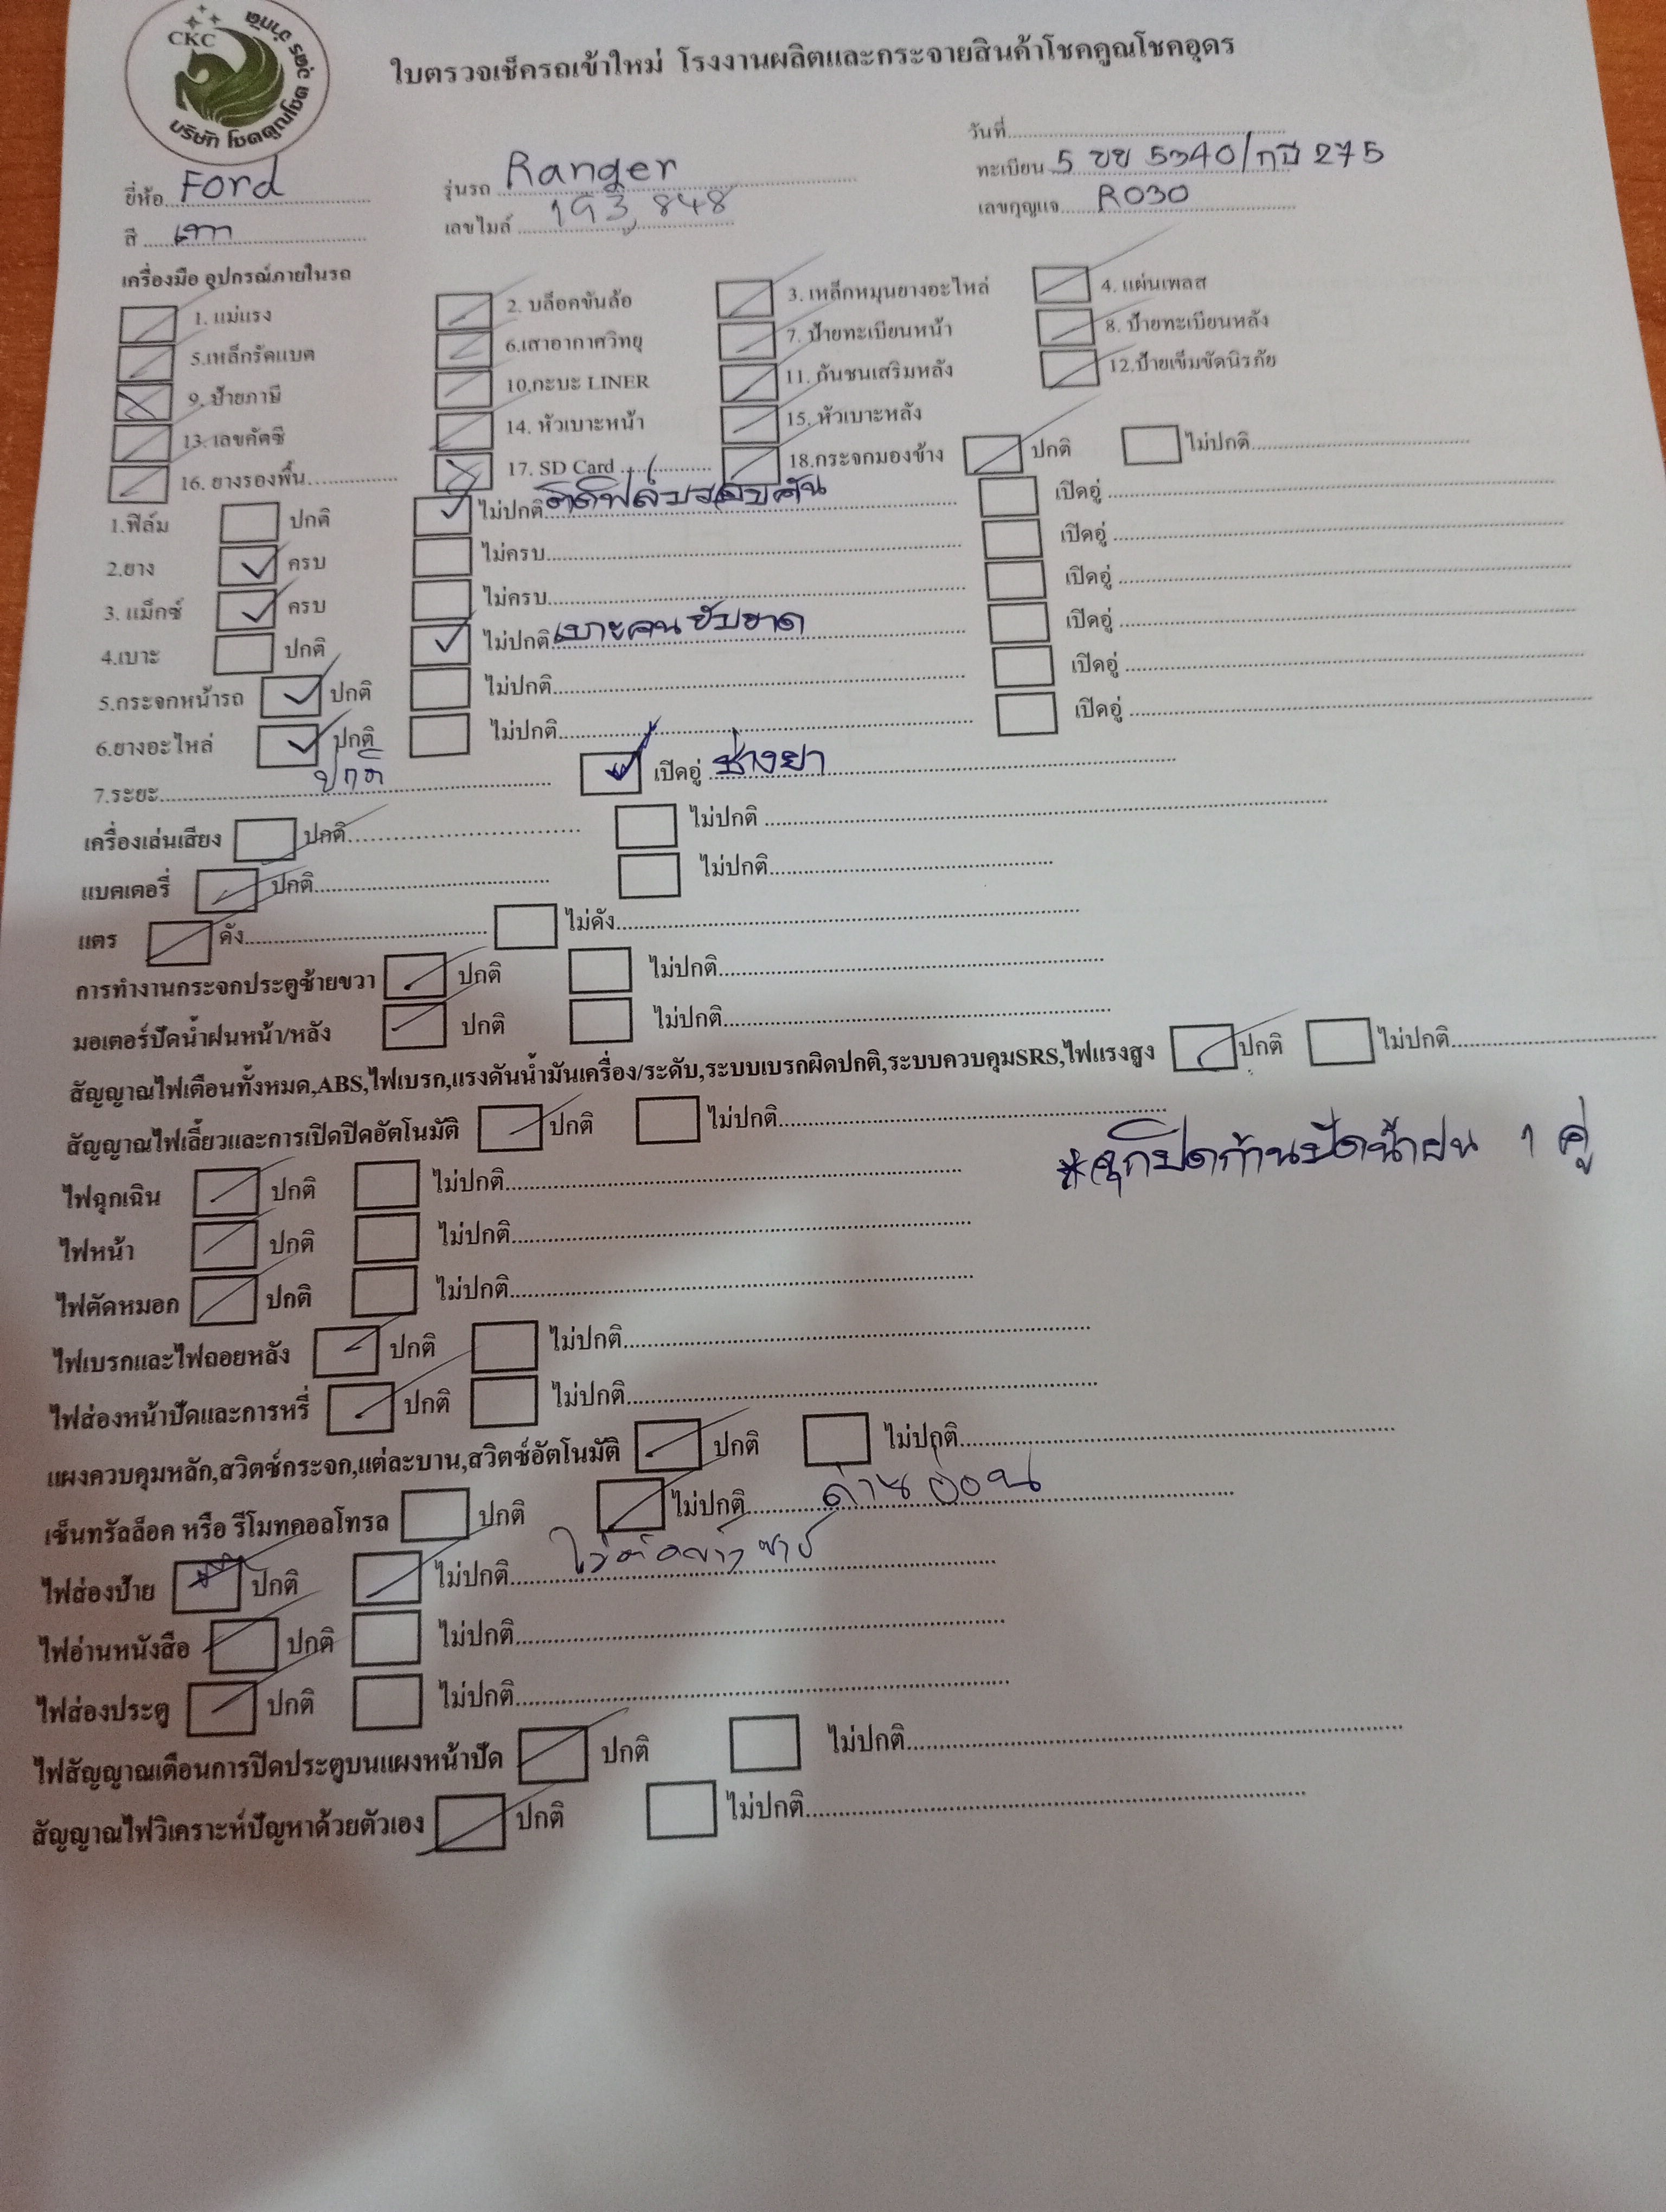 CKC
บริษัท โชคคูณโชค อุดร จำกัด
ใบตรวจเช็ครถเข้าใหม่ โรงงานผลิตและกระจายสินค้าโชคคูณโชคอุดร
วันที่
ยี่ห้อ Ford รุ่นรถ Ranger ทะเบียน 5 ขข 5340/กปี 275
สี เทา เลขไมล์ 193,848 เลขกุญแจ R030
เครื่องมือ อุปกรณ์ภายในรถ
1. แม่แรง 2. บล็อคขันล้อ 3. เหล็กหมุนยางอะไหล่ 4. แผ่นเพลส
5.เหล็กรัดแบต 6.เสาอากาศวิทยุ 7. ป้ายทะเบียนหน้า 8. ป้ายทะเบียนหลัง
9. ป้ายภาษี 10.กะบะ LINER 11. กันชนเสริมหลัง 12.ป้ายเข็มขัดนิรภัย
13. เลขคัตซี 14. หัวเบาะหน้า 15. หัวเบาะหลัง
16. ยางรองพื้น 17. SD Card 18.กระจกมองข้าง ปกติ ไม่ปกติ
1.ฟิล์ม ปกติ ไม่ปกติ ติดฟิล์มรอบคัน เปิดอู่
2.ยาง ครบ ไม่ครบ เปิดอู่
3. แม็กซ์ ครบ ไม่ครบ เปิดอู่
4.เบาะ ปกติ ไม่ปกติ เบาะคนขับขาด เปิดอู่
5.กระจกหน้ารถ ปกติ ไม่ปกติ เปิดอู่
6.ยางอะไหล่ ปกติ ไม่ปกติ เปิดอู่
7.ระยะ ปกติ เปิดอู่ ช่างยา
เครื่องเล่นเสียง ปกติ ไม่ปกติ
แบตเตอรี่ ปกติ ไม่ปกติ
แตร ดัง ไม่ดัง
การทำงานกระจกประตูซ้ายขวา ปกติ ไม่ปกติ
มอเตอร์ปัดน้ำฝนหน้า/หลัง ปกติ ไม่ปกติ
สัญญาณไฟเตือนทั้งหมด,ABS,ไฟเบรก,แรงดันน้ำมันเครื่อง/ระดับ,ระบบเบรกผิดปกติ,ระบบควบคุมSRS,ไฟแรงสูง ปกติ ไม่ปกติ
สัญญาณไฟเลี้ยวและการเปิดปิดอัตโนมัติ ปกติ ไม่ปกติ
*จุกปิดก้านปัดน้ำฝน 1 คู่
ไฟฉุกเฉิน ปกติ ไม่ปกติ
ไฟหน้า ปกติ ไม่ปกติ
ไฟตัดหมอก ปกติ ไม่ปกติ
ไฟเบรกและไฟถอยหลัง ปกติ ไม่ปกติ
ไฟส่องหน้าปัดและการหรี่ ปกติ ไม่ปกติ
แผงควบคุมหลัก,สวิตซ์กระจก,แต่ละบาน,สวิตซ์อัตโนมัติ ปกติ ไม่ปกติ
เซ็นทรัลล็อค หรือ รีโมทคอลโทรล ปกติ ไม่ปกติ ถ่านอ่อน
ไฟส่องป้าย ปกติ ไม่ปกติ
ไฟอ่านหนังสือ ปกติ ไม่ปกติ
ไฟส่องประตู ปกติ ไม่ปกติ
ไฟสัญญาณเตือนการปิดประตูบนแผงหน้าปัด ปกติ ไม่ปกติ
สัญญาณไฟวิเคราะห์ปัญหาด้วยตัวเอง ปกติ ไม่ปกติ